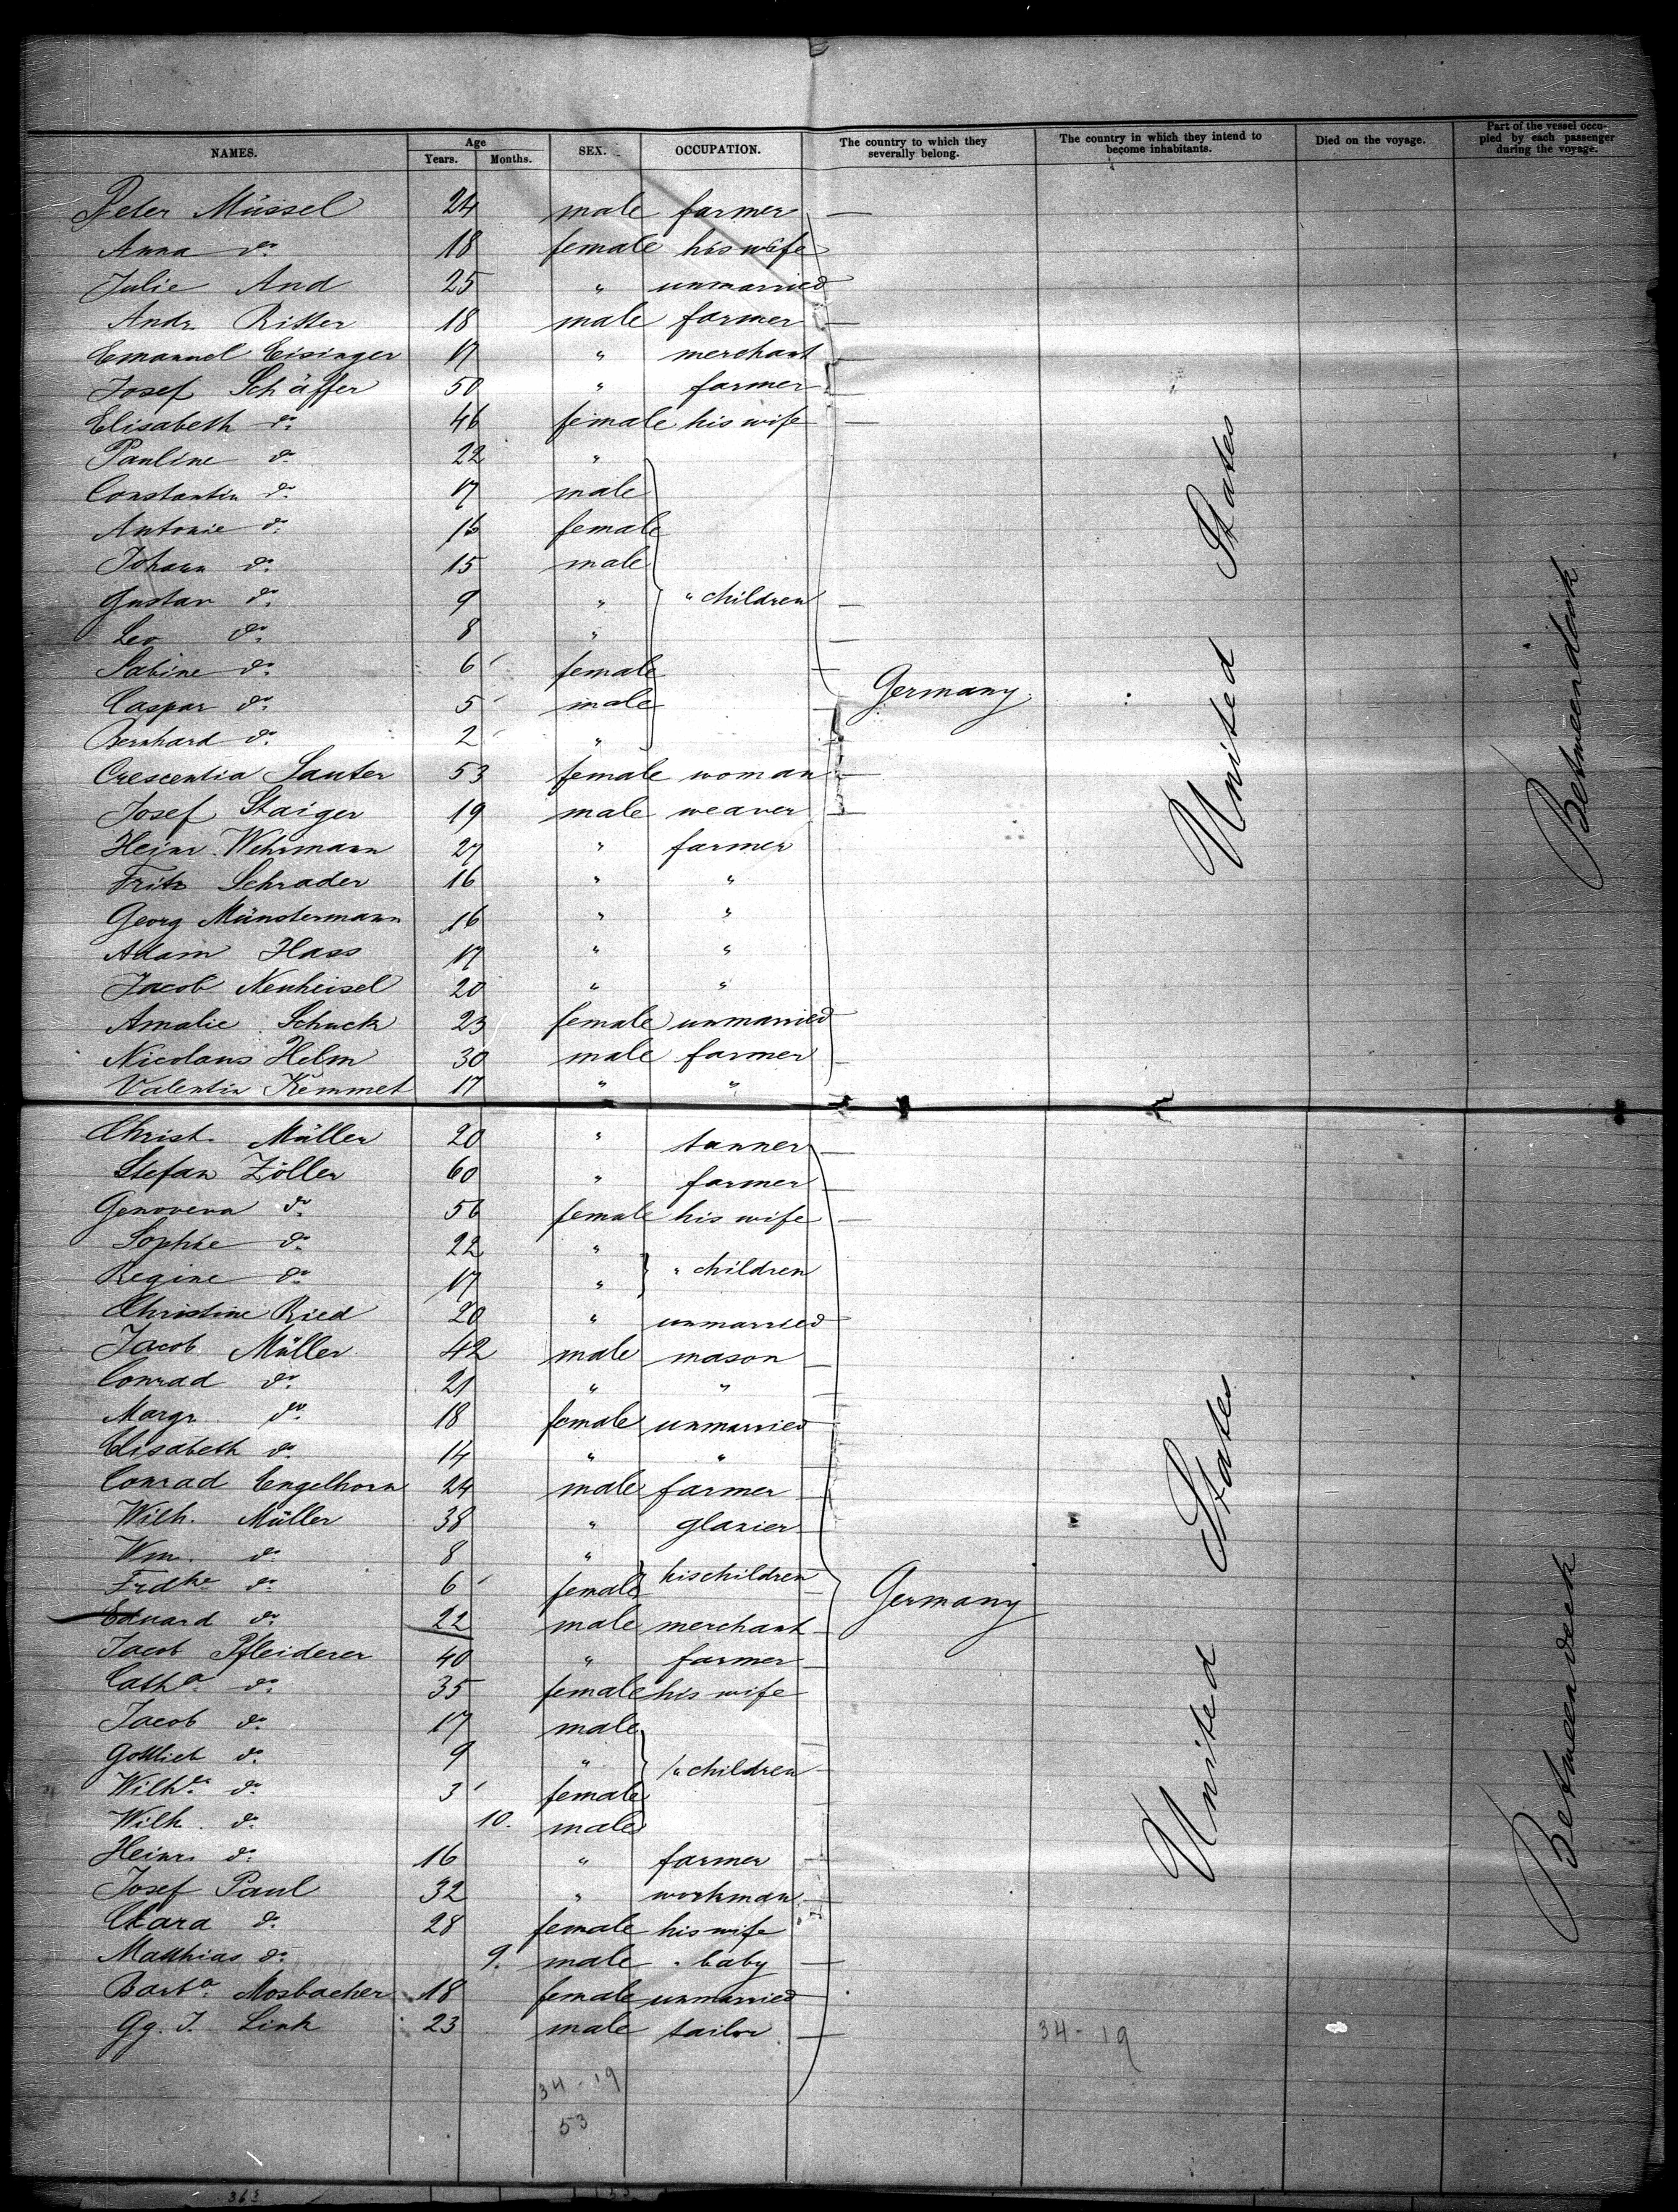 NAMES. Age Years. Months. SEX. OCCUPATION. The country to which they severally belong. The country in which they intend to become inhabitants. Died on the voyage. Part of the vessel occupied by each passenger during the voyage.
Peter Müssel 24 male farmer
Anna do. 18 female his wife
Julie And 25 " unmarried
Andr. Ritter 18 male farmer
Emanuel Eisinger 17 " merchant
Josef Schäffer 50 " farmer
Elisabeth do. 46 female his wife
Pauline do. 22 "
Constantin do. 17 male
Antonie do. 16 female
Johann do. 15 male
Gustav do. 9 " " children
Leo do. 8 "
Sabine do. 6 female
Caspar do. 5 male
Germany
United States
Betweendeck
Bernhard do. 2 "
Crescentia Sauter 53 female woman
Josef Staiger 19 male weaver
Heinr. Wehrmann 27 " farmer
Fritz Schrader 16 " "
Georg Münstermann 16 " "
Adam Hass 17 " "
Jacob Neuheisel 20 " "
Amalie Schuck 23 female unmarried
Nicolaus Helm 30 male farmer
Valentin Kemmet 17 " "
Christ. Müller 20 " tanner
Stefan Zöller 60 " farmer
Genoveva do. 56 female his wife
Sophie do. 22 " " children
Regine do. 17 "
Christine Ried 20 " unmarried
Jacob Müller 42 male mason
Conrad do. 21 " "
Margr. do. 18 female unmarried
Elisabeth do. 14 " "
Conrad Engelhorn 24 male farmer
Wilh. Müller 38 " glazier
Wm. do. 8 " his children
Frdke do. 6 female
Germany
United States
Betweendeck
Eduard do. 22 male merchant
Jacob Pfleiderer 40 " farmer
Catha. do. 35 female his wife
Jacob do. 17 male
Gottlieb do. 9 " " children
Wilhe. do. 3 female
Wilh. do. 10. male
Heinr. do. 16 " farmer
Josef Paul 32 " workman
Clara do. 28 female his wife
Matthias do. 9. male " baby
Barba. Mosbacher 18 female unmarried
Gg. J. Link 23 male tailor
34-19
34-19
53
363